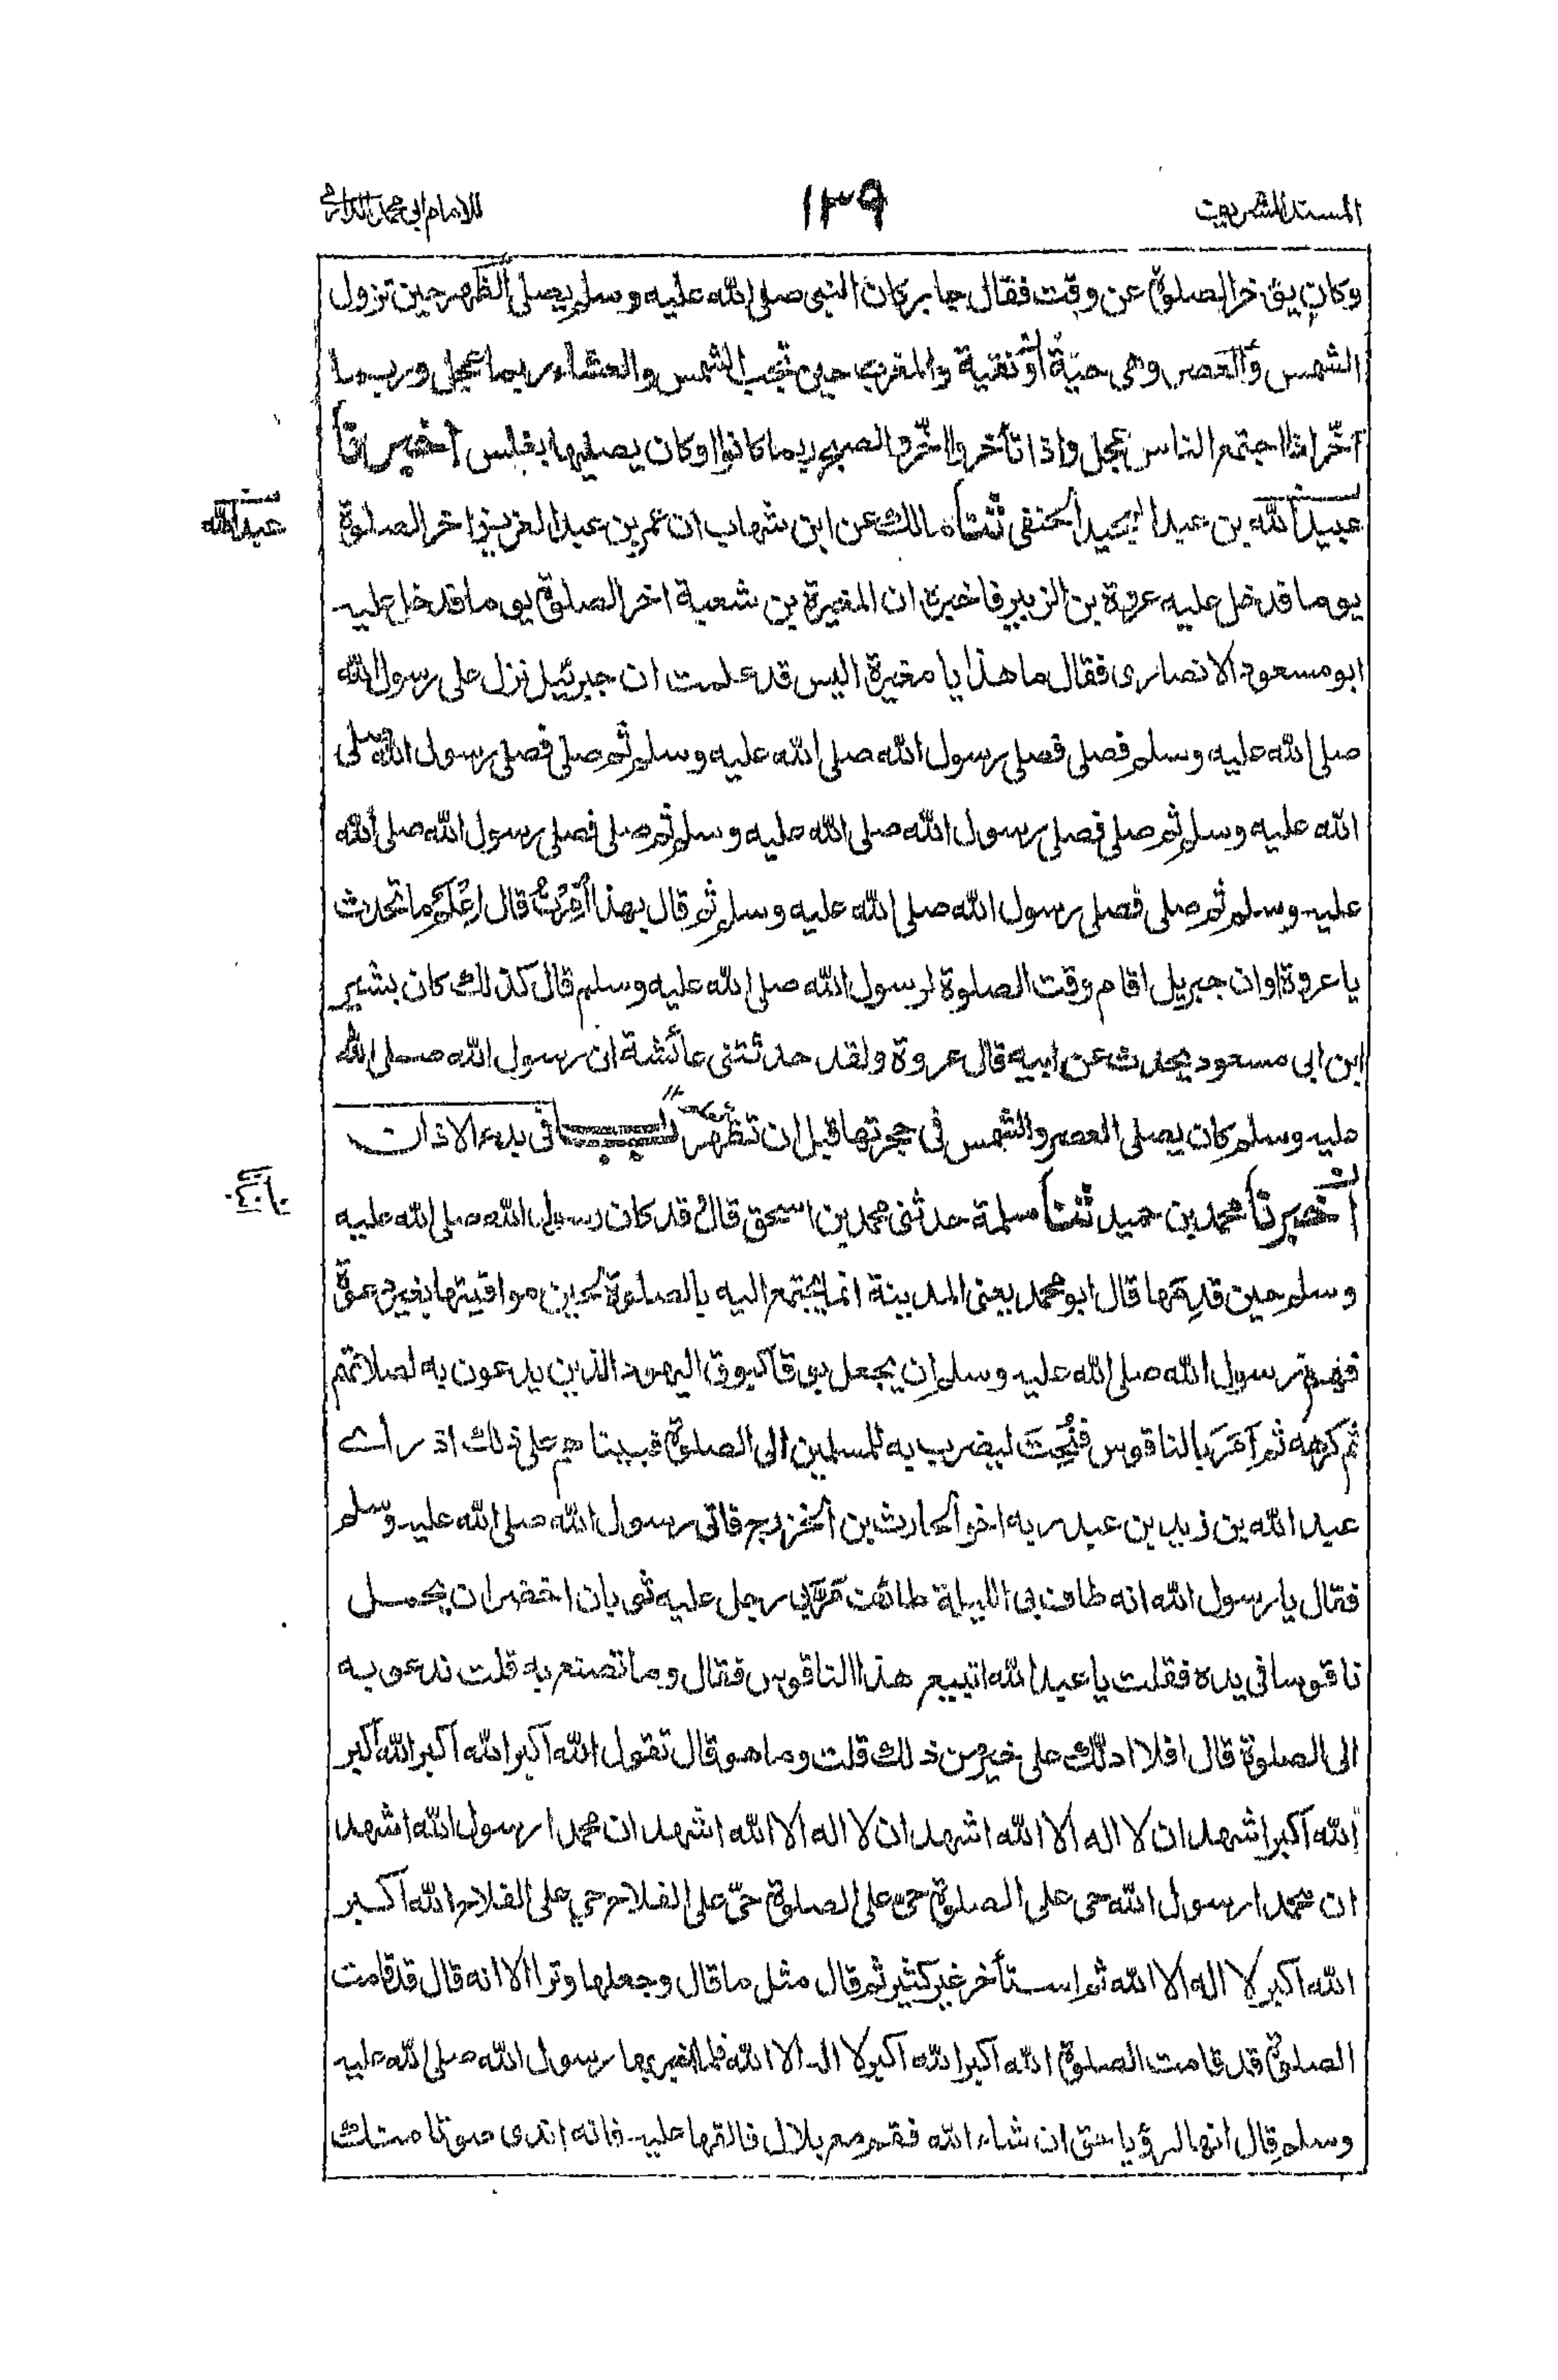 المسند الشريف ١٣٩ للامام ابي محمد الدارمي
وكان يؤخر الصلوة عن وقت فقال جابر كان النبي صلى الله عليه وسلم يصلى الظهر حين تزول
الشمس والعصر وهى حيّة أو نقية والمغرب حين تجب الشمس والعشاء ربما عجل وربما
أخّر اذا اجتمع الناس عجل واذا تأخروا اخّر والصبح ربما كانوا او كان يصليها بغلس أخبرنا
عبيد الله بن عبد المجيد الحنفى ثنا مالك عن ابن شهاب ان عمر بن عبد العزيز اخر الصلوة
عبد الله
يوما فدخل عليه عروة بن الزبير فاخبره ان المغيرة بن شعبة اخر الصلوة يوما فدخل عليه
ابو مسعود الانصارى فقال ما هذا يا مغيرة اليس قد علمت ان جبرئيل نزل على رسول الله
صلى الله عليه وسلم فصلى فصلى رسول الله صلى الله عليه وسلم ثم صلى فصلى رسول الله صلى
الله عليه وسلم ثم صلى فصلى رسول الله صلى الله عليه وسلم ثم صلى فصلى رسول الله صلى الله
عليه وسلم ثم صلى فصلى رسول الله صلى الله عليه وسلم ثم قال بهذا أُمِرْتُ قال اعْلَم ما تحدث
يا عروة اوان جبريل اقام وقت الصلوة لرسول الله صلى الله عليه وسلم قال كذلك كان بشير
ابن ابى مسعود يحدث عن ابيه قال عروة ولقد حدثتنى عائشة ان رسول الله صلى الله
عليه وسلم كان يصلى العصر والشمس فى حجرتها قبل ان تظهر باب فى بدء الاذان
أخبرنا محمد بن حميد ثنا سلمة حدثنى محمد بن اسحق قال قد كان رسول الله صلى الله عليه
وسلم حين قدمها قال ابو محمد يعنى المدينة انما يجتمع اليه بالصلوة لحين مواقيتها بغير دعوة
فهم رسول الله صلى الله عليه وسلم ان يجعل بوقا كبوق اليهود الذين يدعون به لصلاتهم
ثم كرهه ثم أمَرَ بالناقوس فنُحِتَ ليضرب به للمسلمين الى الصلوة فبينا هم على ذلك اذ رأى
عبد الله بن زيد بن عبد ربه اخو الحارث بن الخزرج فاتى رسول الله صلى الله عليه وسلم
فقال يا رسول الله انه طاف بى الليلة طائف مَرَّ بى رجل عليه ثوبان اخضران يحمل
ناقوسا فى يده فقلت يا عبد الله اتبيع هذا الناقوس فقال وما تصنع به قلت ندعو به
الى الصلوة قال افلا ادلّك على خير من ذلك قلت وما هو قال تقول الله اكبر الله اكبر الله اكبر
الله اكبر اشهد ان لا اله الا الله اشهد ان لا اله الا الله اشهد ان محمدا رسول الله اشهد
ان محمدا رسول الله حى على الصلوة حىّ على الصلوة حىّ على الفلاح حي على الفلاح الله اكبر
الله اكبر لا اله الا الله ثم استأخر غير كثير ثم قال مثل ما قال وجعلها وترا الا انه قال قد قامت
الصلوة قد قامت الصلوة الله اكبر الله اكبر لا اله الا الله فلما خبر بها رسول الله صلى الله عليه
وسلم قال انها لرؤيا حق ان شاء الله فقم مع بلال فالقها عليه فانه اندى صوتا منك